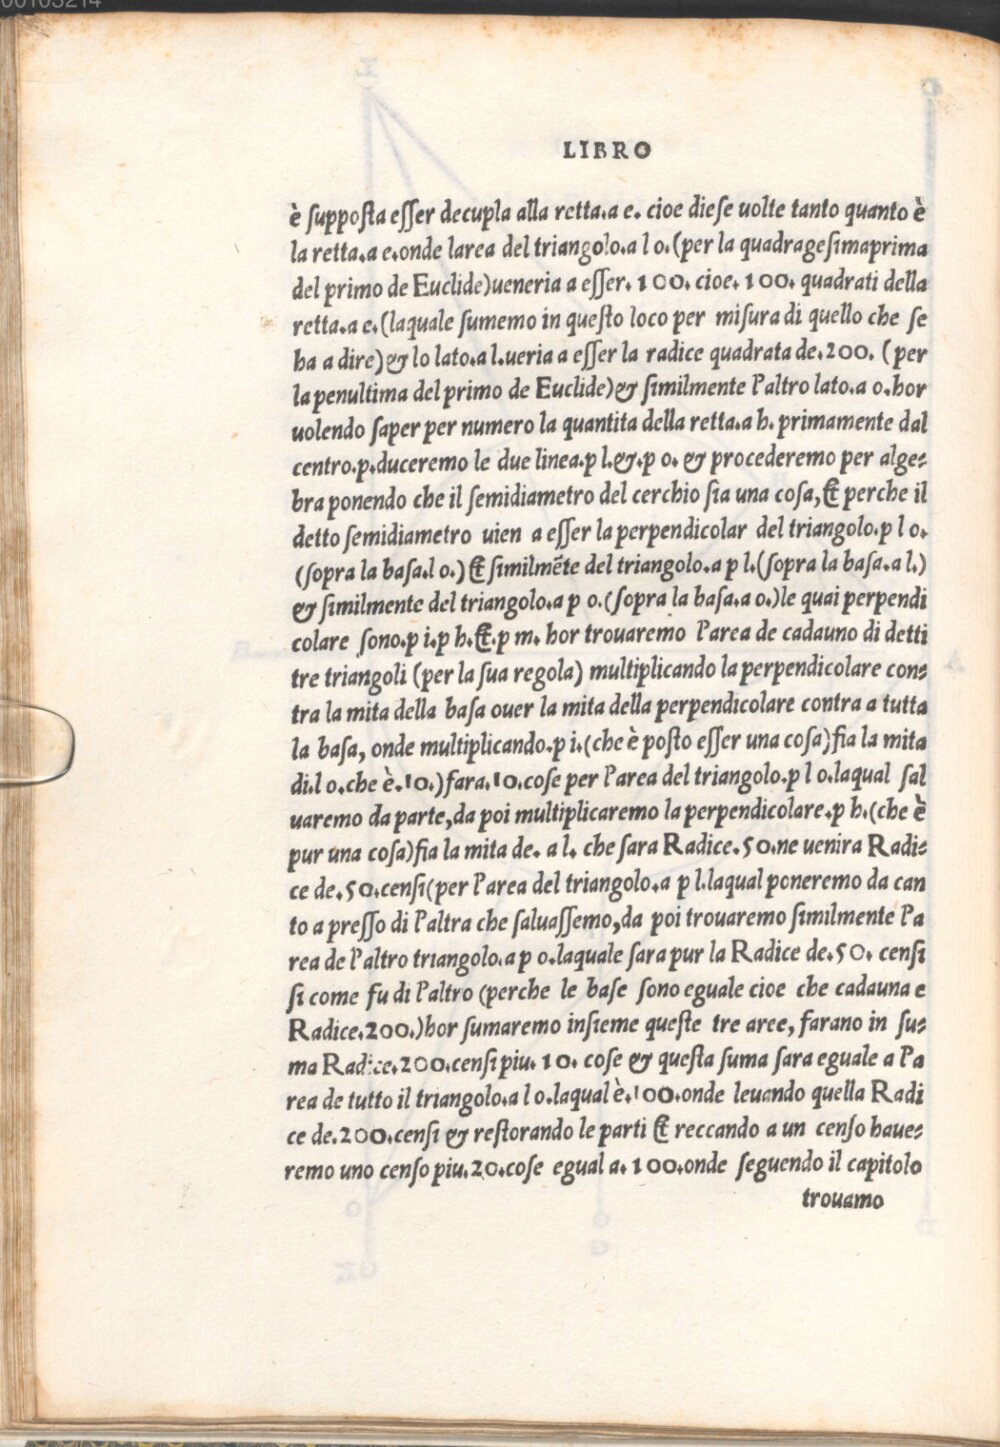 00103214
LIBRO
è ſuppoſta eſſer decupla alla retta.a e. cioe dieſe uolte tanto quanto è
la retta.a e.onde larea del triangolo.a l o.(per la quadrageſimaprima
del primo de Euclide)ueneria a eſſer. 100. cioe. 100. quadrati della
retta.a e.(laquale ſumemo in queſto loco per miſura di quello che ſe
ha a dire)& lo lato.a l.ueria a eſſer la radice quadrata de.200. (per
la penultima del primo de Euclide)& ſimilmente l'altro lato.a o.hor
uolendo ſaper per numero la quantita della retta.a h. primamente dal
centro.p.duceremo le due linea.p l.&.p o. & procederemo per alge-
bra ponendo che il ſemidiametro del cerchio ſia una coſa,& perche il
detto ſemidiametro uien a eſſer la perpendicolar del triangolo.p l o.
(ſopra la baſa.l o.)& ſimilmẽte del triangolo.a p l.(ſopra la baſa.a l.)
& ſimilmente del triangolo.a p o.(ſopra la baſa.a o.)le quai perpendi
colare ſono.p i.p h.&.p m. hor trouaremo l'area de cadauno di detti
tre triangoli (per la ſua regola) multiplicando la perpendicolare con-
tra la mita della baſa ouer la mita della perpendicolare contra a tutta
la baſa, onde multiplicando.p i.(che è poſto eſſer una coſa)fia la mita
di.l o.che è.10.)fara.10.coſe per l'area del triangolo.p l o.laqual ſal
uaremo da parte,da poi multiplicaremo la perpendicolare.p h.(che è
pur una coſa)fia la mita de. a l. che ſara Radice.50.ne uenira Radi-
ce de.50.cenſi(per l'area del triangolo.a p l.laqual poneremo da can
to a preſſo di l'altra che ſaluaſſemo,da poi trouaremo ſimilmente l'a
rea de l'altro triangolo.a p o.laquale ſara pur la Radice de.50. cenſi
ſi come fu di l'altro (perche le baſe ſono eguale cioe che cadauna e
Radice.200.)hor ſumaremo inſieme queſte tre aree, farano in ſu-
ma Radice.200.cenſi piu. 10. coſe & queſta ſuma ſara eguale a l'a
rea de tutto il triangolo.a l o.laqual è.100.onde leuando quella Radi
ce de.200.cenſi & reſtorando le parti & reccando a un cenſo haue-
remo uno cenſo piu.20.coſe egual a. 100.onde ſeguendo il capitolo
trouamo